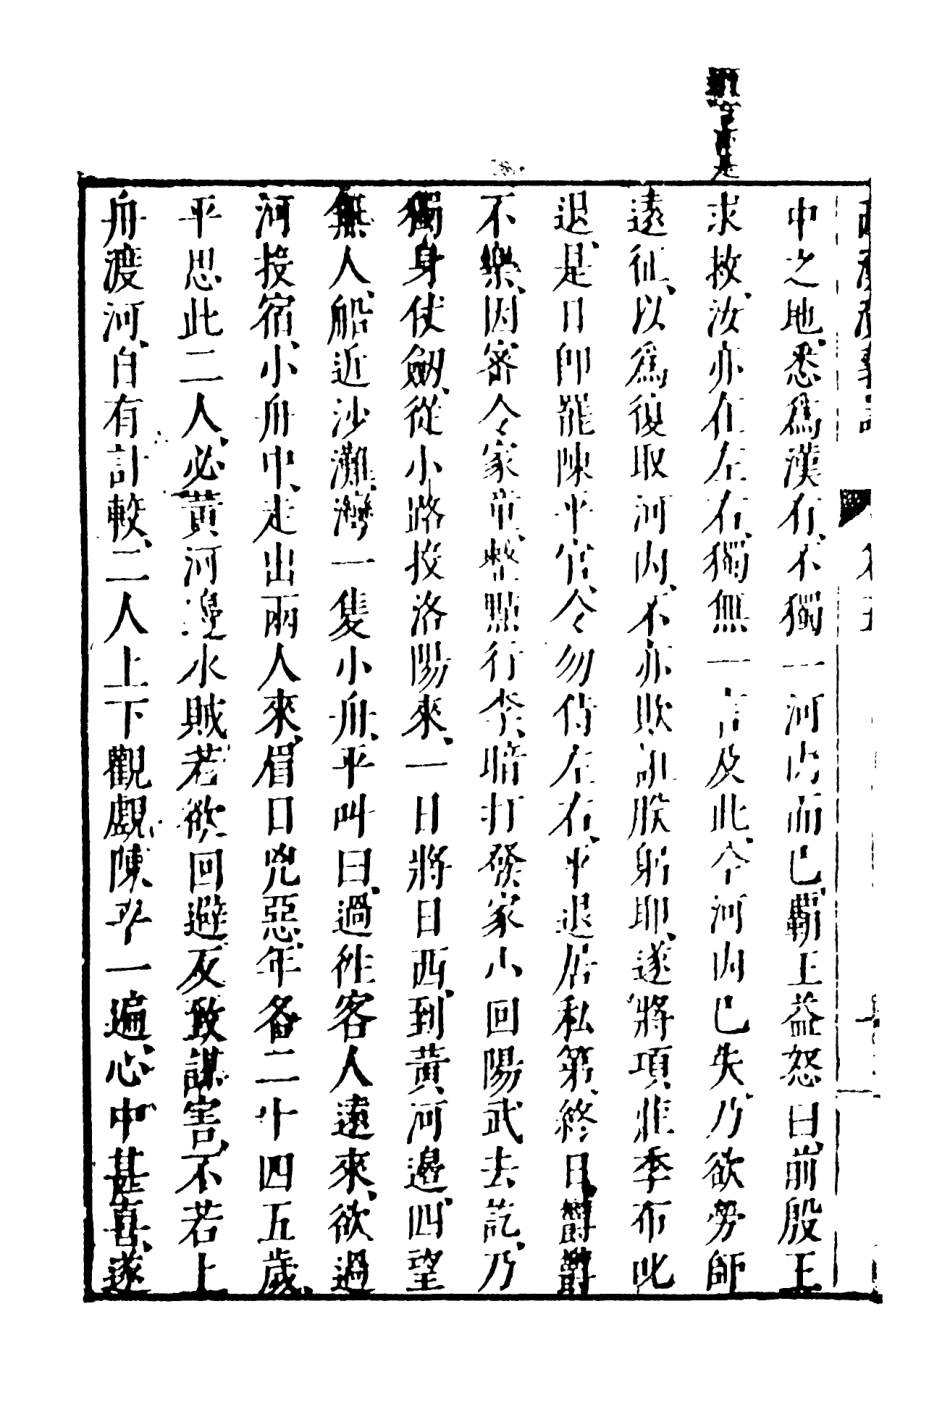 中之地、悉爲漢有、不獨一河内而已、霸王益怒曰、前殷王
求救、汝亦在左右、獨無一言及此、今河内已失、乃欲勞師
遠征、以爲復取河内、不亦欺誑朕躬耶、遂將項莊季布叱
退、是日即罷陳平官、令勿侍左右、平退居私第、終日鬱鬱
不樂、因密令家童、整點行李、暗打發家小回陽武去訖、乃
獨身仗劒、從小路投洛陽來、一日將日西、到黃河邊、四望
無人、船近沙灘、灣一隻小舟、平叫曰、過往客人遠來、欲過
河投宿、小舟中、走出兩人來、眉目兇惡、年各二十四五歲、
平思此二人、必黃河邊水賊、若欲回避、反致謀害、不若上
舟渡河、自有計較、二人上下觀覷陳平一遍、心中甚喜、遂